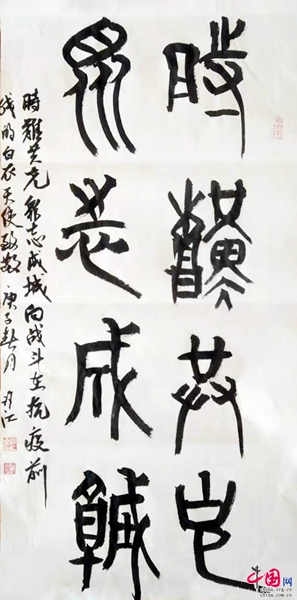 時艱共克
眾志成城
時艱共克眾志成城向战斗在抗疫前
线的白衣天使致敬 庚子春月 江
中国网
china.org.cn